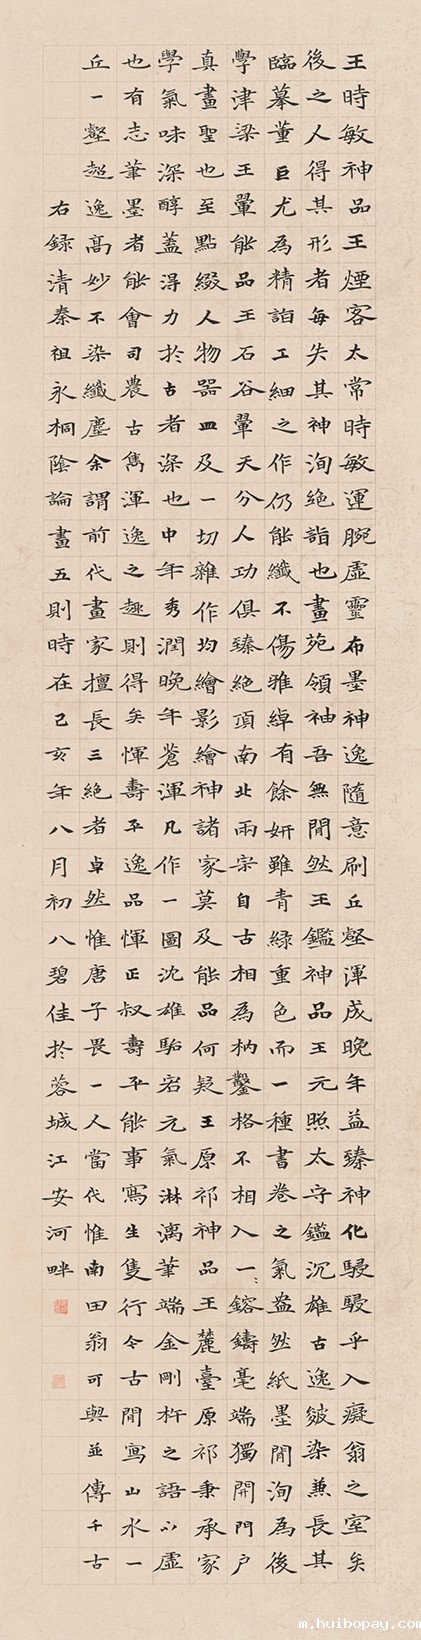 王時敏神品王煙客太常時敏運腕虛靈布墨神逸隨意刷丘壑渾成晚年益臻神化駸駸乎入癡翁之室矣
後之人得其形者每失其神洵絕詣也畫苑領袖吾無閒然王鑑神品王元照太守鑑沉雄古逸皴染兼長其
臨摹董巨尤為精詣工細之作仍能纖不傷雅綽有餘妍雖青綠重色而一種書卷之氣盎然紙墨閒洵為後
學津梁王翬能品王石谷翬天分人功俱臻絕頂南北兩宗自古相為枘鑿格不相入一〻鎔鑄毫端獨開門戶
真畫聖也至點綴人物器皿及一切雜作均繪影繪神諸家莫及能品何疑王原祁神品王麓臺原祁秉承家
學氣味深醇蓋淂力於古者深也中年秀潤晚年蒼渾凡作一圖沈雄駘宕元氣淋漓筆端金剛杵之語以虛
也有志筆墨者能會司農古雋渾逸之趣則得矣惲壽平逸品惲正叔壽平能事寫生隻行今古閒寫山水一
丘一壑超逸高妙不染纖塵余謂前代畫家擅長三絕者卓然惟唐子畏一人當代惟南田翁可與並傳千古
右錄清秦祖永桐陰論畫五則時在己亥年八月初八碧佳於蓉城江安河畔
m.huibopay.com